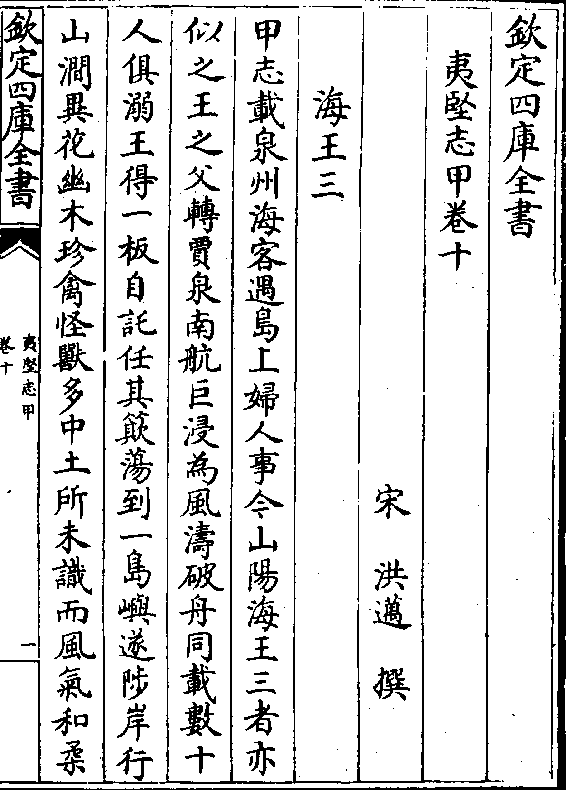 欽定四庫全書
夷堅志甲卷十
宋 洪邁 撰
海王三
甲志載泉州海客遇島上婦人事今山陽海王三者亦
似之王之父轉賈泉南航巨浸為風濤破舟同載數十
人俱溺王得一板自託任其簸蕩到一島嶼遂陟岸行
山澗異花幽木珍禽怪獸多中土所未識而風氣和柔
欽定四庫全書
夷堅志甲
卷十
一